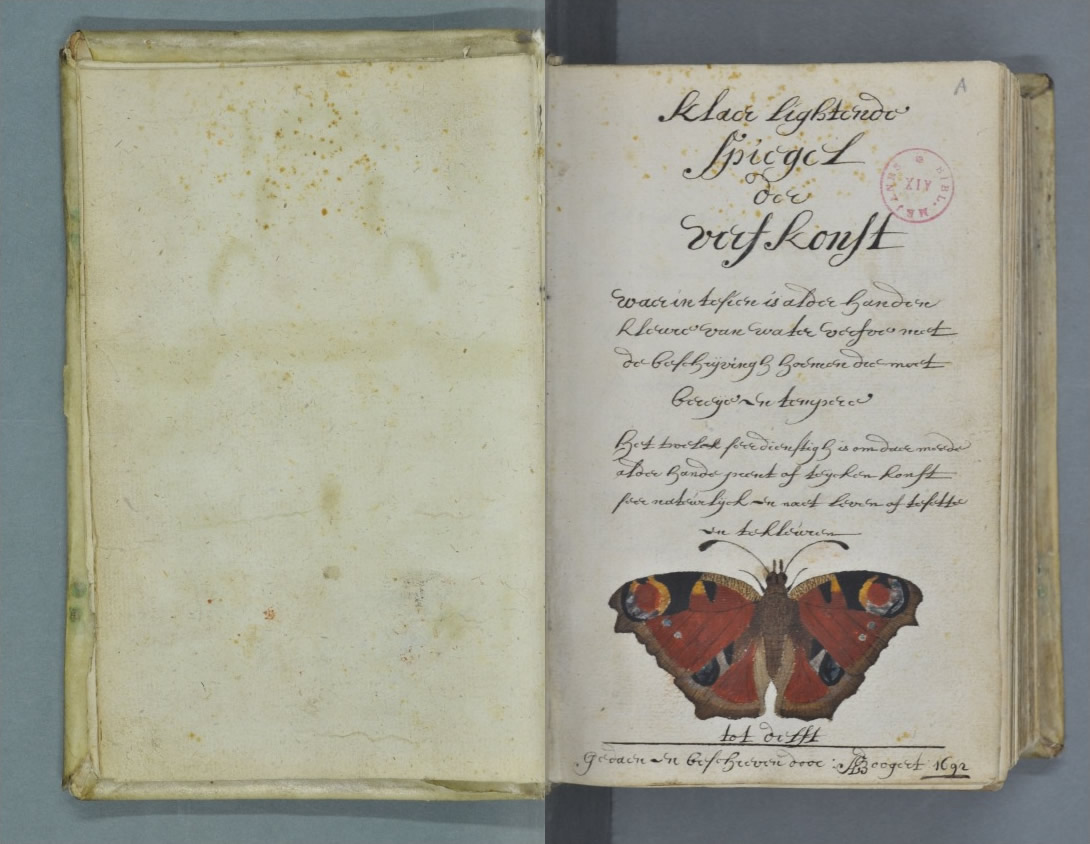 A
Klaer lightende
Spiegel
der
verfkonst
BIBL. MEJANES
AIX
waer in te sien is alder handen
kleuren van water verfve met
de beschrijvingh hoemen die moet
bereyen en tempere
Het welck seer dienstigh is om daer meede
alder hande prent of teycken konst
seer natuerlyck en naet leven af te sette
en te kleuren
tot delft
Gedaen en beschreven door: A Boogert 1692